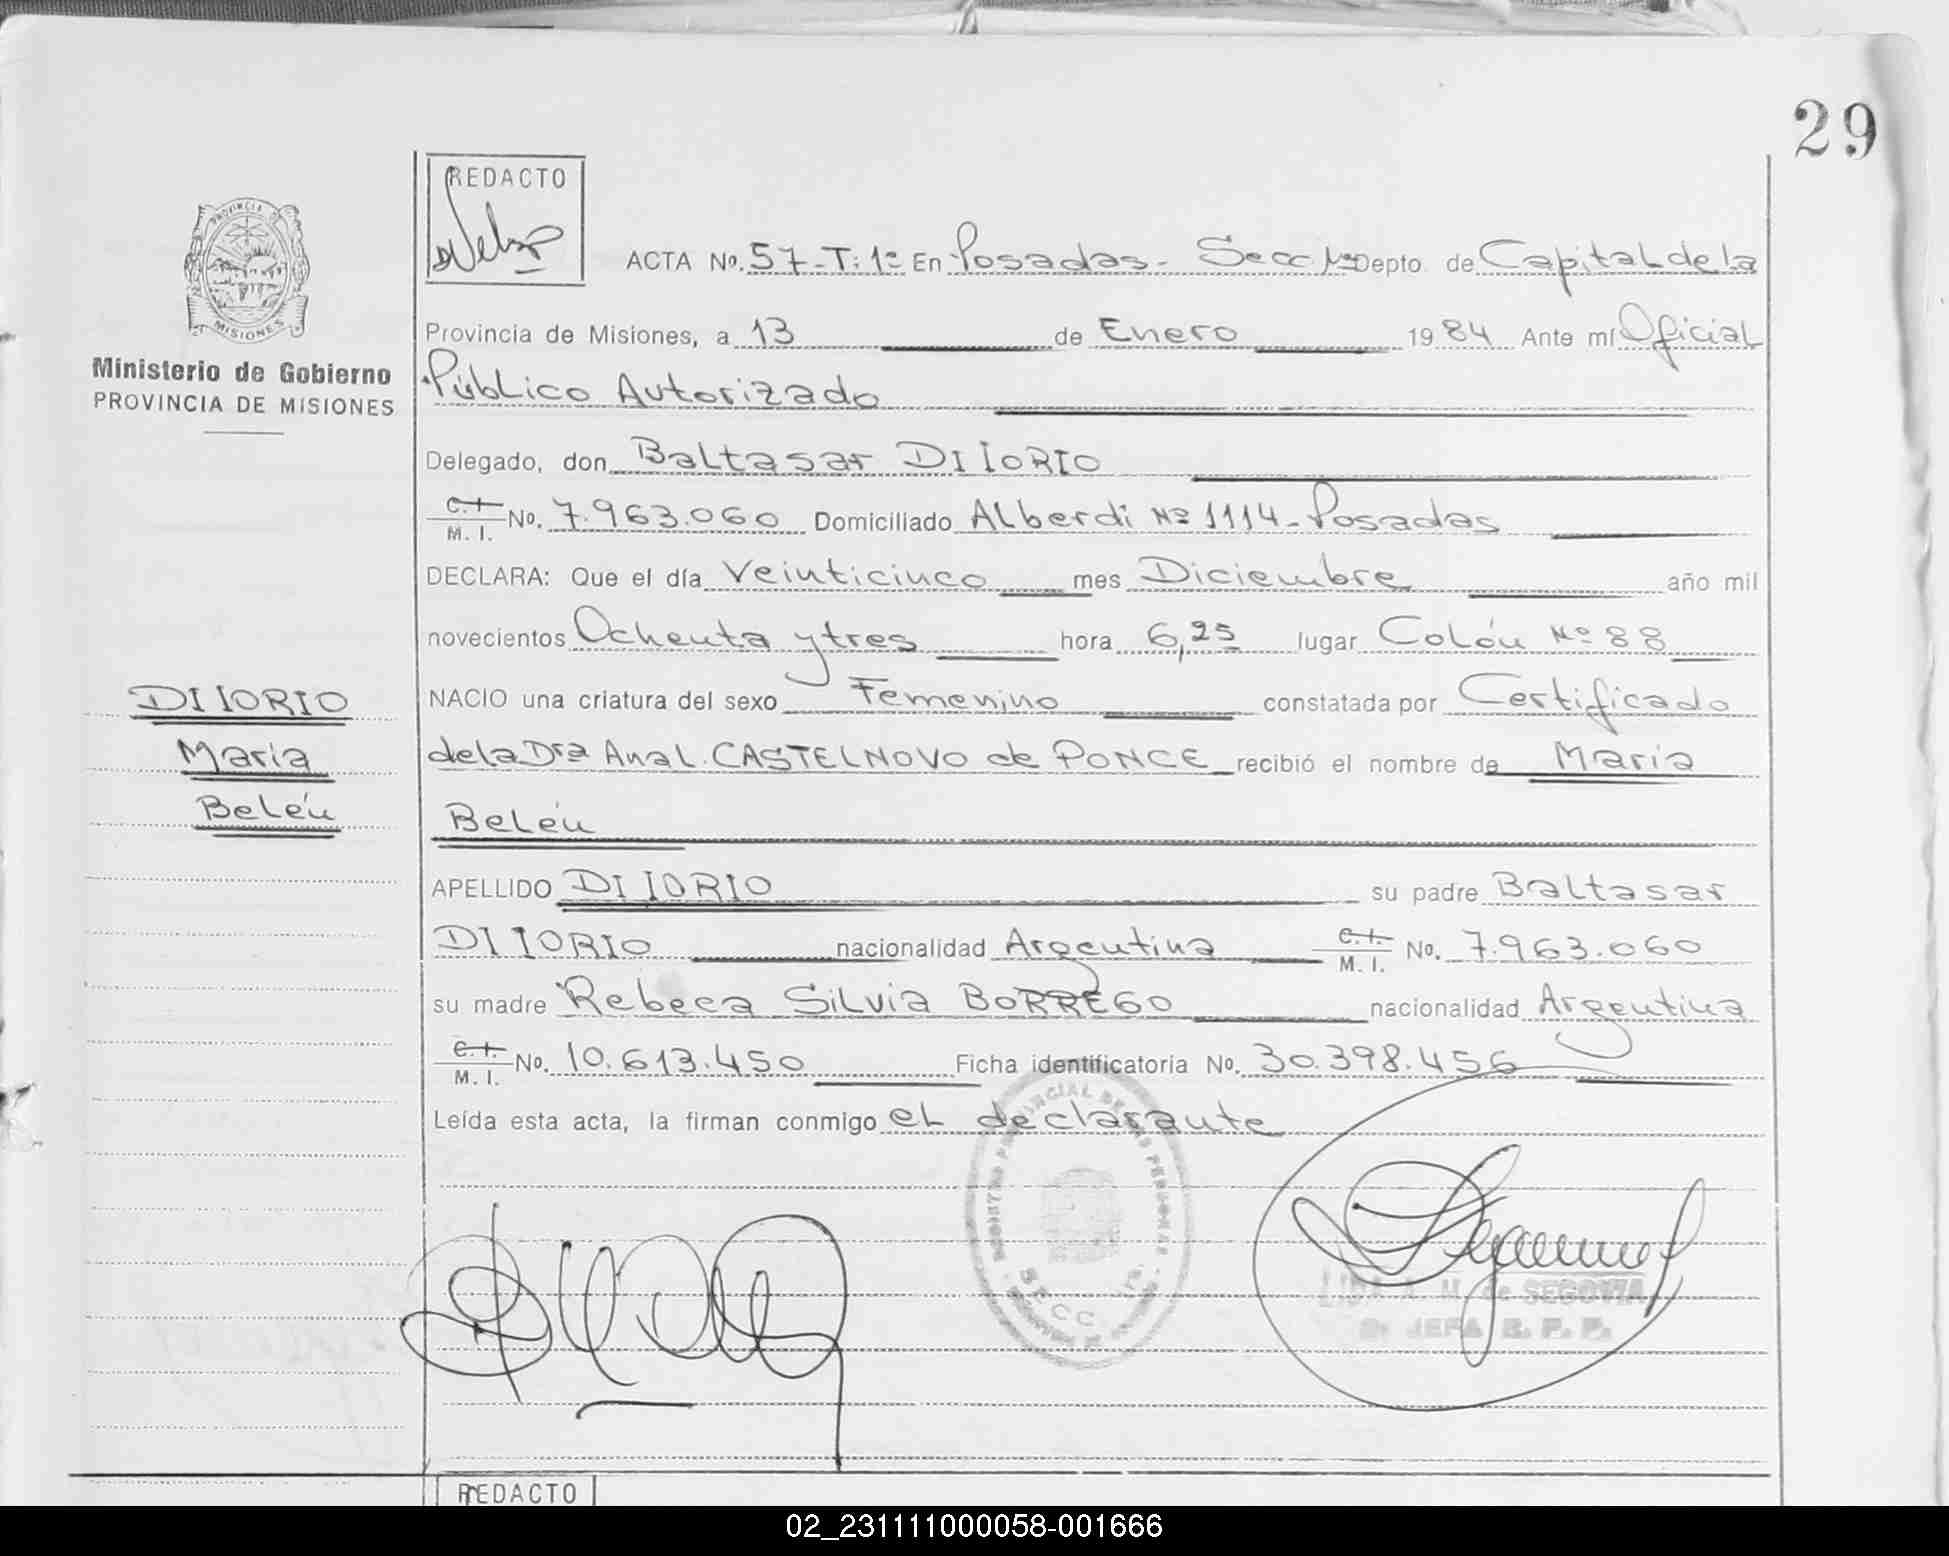 29
REDACTO
PROVINCIA DE
MISIONES
Ministerio de Gobierno
PROVINCIA DE MISIONES
ACTA No. 57-T: 1º En Posadas - Secc 1ª Depto de Capital de la
Provincia de Misiones, a 13 de Enero 1984 Ante mí Oficial
Público Autorizado
Delegado, don Baltasar DI IORIO
C.I. M.I. No. 7.963.060 Domiciliado Alberdi Nº 1114 - Posadas
DECLARA: Que el día Veinticinco mes Diciembre año mil
novecientos Ochenta y tres hora 6,25 lugar Colón Nº 88
DI IORIO
María
Belén
NACIO una criatura del sexo Femenino constatada por Certificado
de la Dra Ana L. CASTELNOVO de PONCE recibió el nombre de María
Belén
APELLIDO DI IORIO su padre Baltasar
DI IORIO nacionalidad Argentina C.I. M.I. No. 7.963.060
su madre Rebeca Silvia BORREGO nacionalidad Argentina
C.I. M.I. No. 10.613.450 Ficha identificatoria No. 30.398.456
Leída esta acta, la firman conmigo el declarante
SECC
A. M. de SEGOVIA
JEFA R. P. P.
REDACTO
02_231111000058-001666